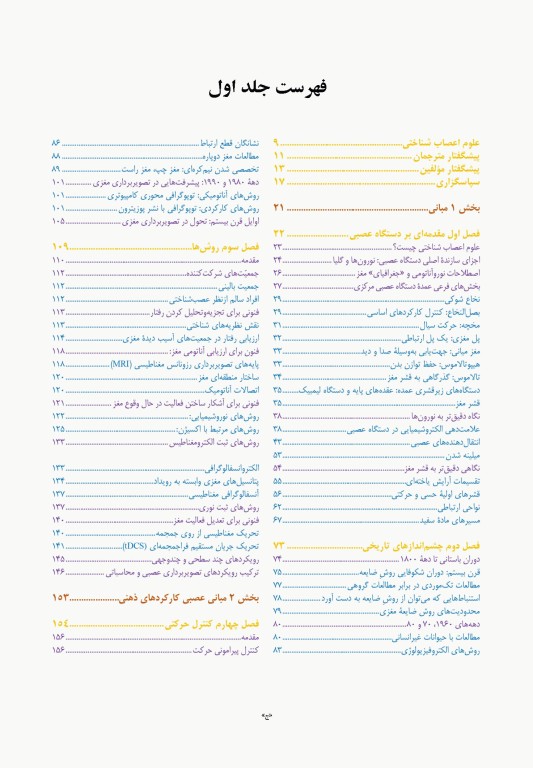 فهرست جلد اول
علوم اعصاب شناختی ... ۹
پیشگفتار مترجمان ... ۱۱
پیشگفتار مؤلفین ... ۱۳
سپاسگزاری ... ۱۷
بخش ۱ مبانی ... ۲۱
فصل اول مقدمه‌ای بر دستگاه عصبی ... ۲۲
علوم اعصاب شناختی چیست؟ ... ۲۳
اجزای سازندهٔ اصلی دستگاه عصبی: نورون‌ها و گلیا ... ۲۴
اصطلاحات نوروآناتومی و «جغرافیای» مغز ... ۲۶
بخش‌های فرعی عمدهٔ دستگاه عصبی مرکزی ... ۲۷
نخاع شوکی ... ۲۹
بصل‌النخاع: کنترل کارکردهای اساسی ... ۲۹
مخچه: حرکت سیال ... ۳۱
پل مغزی: یک پل ارتباطی ... ۳۲
مغز میانی: جهت‌یابی به‌وسیلهٔ صدا و دید ... ۳۳
هیپوتالاموس: حفظ توازن بدن ... ۳۳
تالاموس: گذرگاهی به قشر مغز ... ۳۴
دستگاه‌های زیرقشری عمده: عقده‌های پایه و دستگاه لیمبیک ... ۳۵
قشر مغز ... ۳۵
نگاه دقیق‌تر به نورون‌ها ... ۳۸
علامت‌دهی الکتروشیمیایی در دستگاه عصبی ... ۳۸
انتقال‌دهنده‌های عصبی ... ۴۳
میلینه شدن ... ۵۳
نگاهی دقیق‌تر به قشر مغز ... ۵۴
تقسیمات آرایش یاخته‌ای ... ۵۵
قشرهای اولیهٔ حسی و حرکتی ... ۵۶
نواحی ارتباطی ... ۶۲
مسیرهای مادهٔ سفید ... ۶۷
فصل دوم چشم‌اندازهای تاریخی ... ۷۳
دوران باستانی تا دههٔ ۱۸۰۰ ... ۷۴
قرن بیستم: دوران شکوفایی روش ضایعه ... ۷۵
مطالعات تک‌موردی در برابر مطالعات گروهی ... ۷۷
استنباط‌هایی که می‌توان از روش ضایعه به دست آورد ... ۷۸
محدودیت‌های روش ضایعهٔ مغزی ... ۷۹
دهه‌های ۱۹۶۰، ۷۰ و ۸۰ ... ۸۰
مطالعات با حیوانات غیرانسانی ... ۸۰
روش‌های الکتروفیزیولوژی ... ۸۳
نشانگان قطع ارتباط ... ۸۶
مطالعات مغز دوپاره ... ۸۸
تخصصی شدن نیم‌کره‌ای: مغز چپ، مغز راست ... ۸۹
دههٔ ۱۹۸۰ و ۱۹۹۰: پیشرفت‌هایی در تصویربرداری مغزی ... ۱۰۱
روش‌های آناتومیکی: توپوگرافی محوری کامپیوتری ... ۱۰۱
روش‌های کارکردی: توپوگرافی با نشر پوزیترون ... ۱۰۱
اوایل قرن بیستم: تحول در تصویربرداری مغزی ... ۱۰۵
فصل سوم روش‌ها ... ۱۰۹
مقدمه ... ۱۱۰
جمعیّت‌های شرکت‌کننده ... ۱۱۲
جمعیت بالینی ... ۱۱۲
افراد سالم ازنظر عصب‌شناختی ... ۱۱۲
فنونی برای تجزیه‌وتحلیل کردن رفتار ... ۱۱۳
نقش نظریه‌های شناختی ... ۱۱۳
ارزیابی رفتار در جمعیت‌های آسیب دیدهٔ مغزی ... ۱۱۴
فنون برای ارزیابی آناتومی مغز: ... ۱۱۸
پایه‌های تصویربرداری رزونانس مغناطیسی (MRI) ... ۱۱۸
ساختار منطقه‌ای مغز ... ۱۲۰
اتصالات آناتومیک ... ۱۲۰
فنونی برای آشکار ساختن فعالیت در حال وقوع مغز ... ۱۲۱
روش‌های نوروشیمیایی: ... ۱۲۲
روش‌های مرتبط با اکسیژن: ... ۱۲۵
روش‌های ثبت الکترومغناطیس ... ۱۳۳
الکتروانسفالوگرافی ... ۱۳۳
پتانسیل‌های مغزی وابسته به رویداد ... ۱۳۴
آنسفالوگرافی مغناطیسی ... ۱۳۷
روش‌های ثبت نوری ... ۱۳۷
فنونی برای تعدیل فعالیت مغز ... ۱۴۰
تحریک مغناطیسی از روی جمجمه ... ۱۴۰
تحریک جریان مستقیم فراجمجمه‌ای (tDCS) ... ۱۴۱
رویکردهای چند سطحی و چندوجهی ... ۱۴۵
ترکیب رویکردهای تصویربرداری عصبی و محاسباتی ... ۱۴۶
بخش ۲ مبانی عصبی کارکردهای ذهنی ... ۱۵۳
فصل چهارم کنترل حرکتی ... ۱۵۴
مقدمه ... ۱۵۶
کنترل پیرامونی حرکت ... ۱۵۶